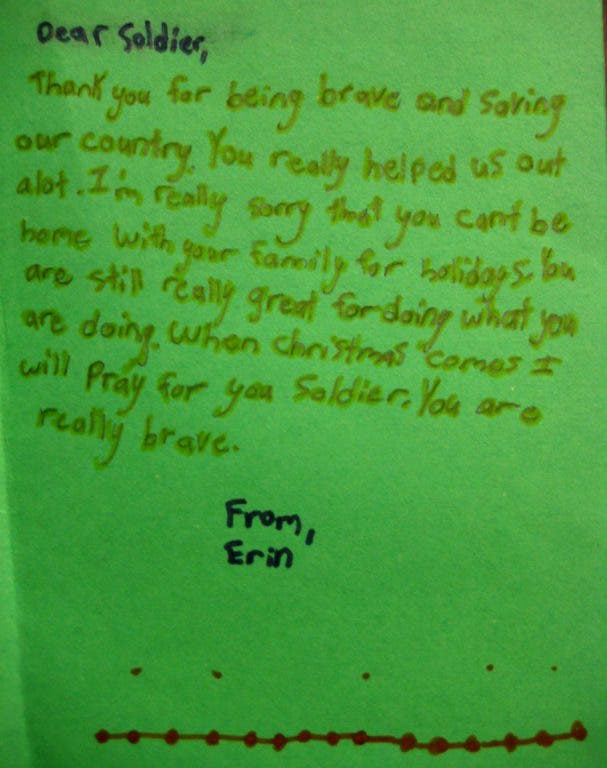 Dear Soldier,
Thank you for being brave and saving
our country. You really helped us out
alot. I'm really sorry that you can't be
home with your family for holidays. You
are still really great for doing what you
are doing. When christmas comes I
will pray for you Soldier. You are
really brave.
From,
Erin